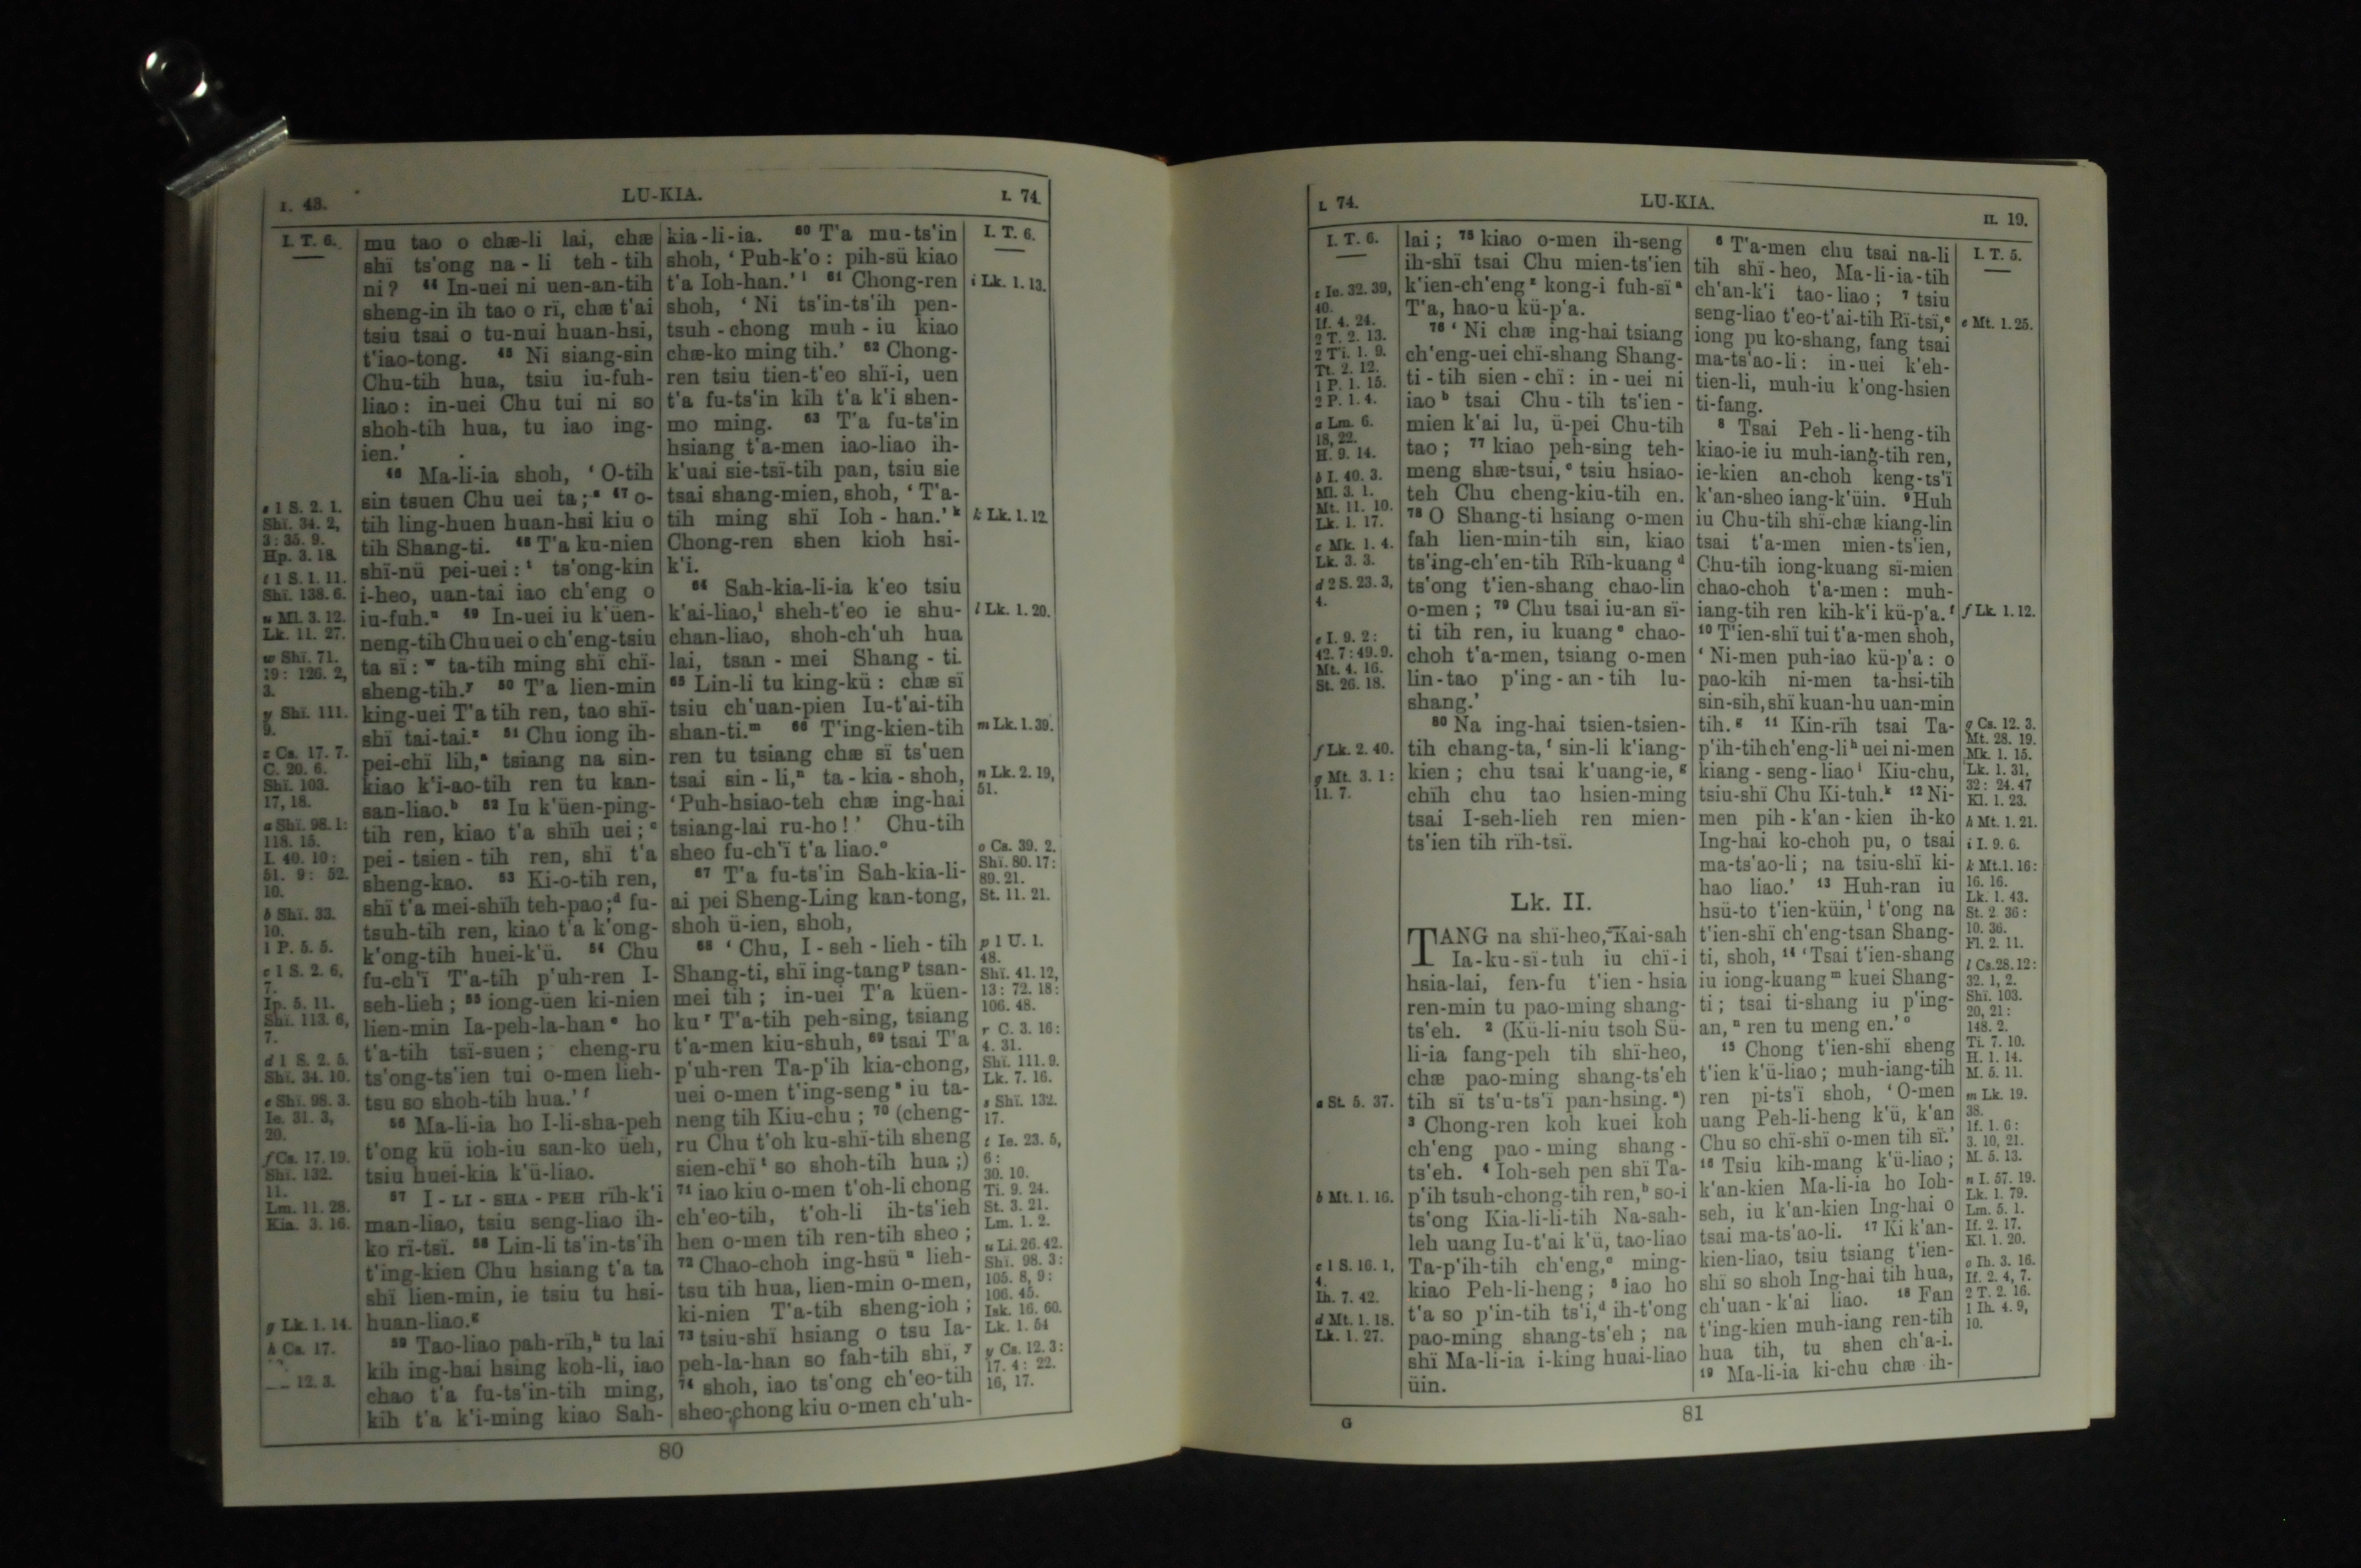 I. 43.
LU-KIA.
I. 74.
I. T. 6.
s 1 S. 2. 1.
Shï. 34. 2,
3: 35. 9.
Hp. 3. 18.
t 1 S. 1. 11.
Shï. 138. 6.
u Ml. 3. 12.
Lk. 11. 27.
w Shï. 71.
19: 126. 2,
3.
y Shï. 111.
9.
z Cs. 17. 7.
C. 20. 6.
Shï. 103.
17, 18.
a Shï. 98. 1:
118. 15.
I. 40. 10:
51. 9: 52.
10.
b Shï. 33.
10.
1 P. 5. 5.
c 1 S. 2. 6,
7.
Ip. 5. 11.
Shï. 113. 6,
7.
d 1 S. 2. 5.
Shï. 34. 10.
e Shï. 98. 3.
Ie. 31. 3,
20.
f Cs. 17. 19.
Shï. 132.
11.
Lm. 11. 28.
Kia. 3. 16.
g Lk. 1. 14.
h Cs. 17.
12. 3.
mu tao o chæ-li lai, chæ
shï ts'ong na-li teh-tih
ni? 44 In-uei ni uen-an-tih
sheng-in ih tao o rï, chæ t'ai
tsiu tsai o tu-nui huan-hsi,
t'iao-tong. 45 Ni siang-sin
Chu-tih hua, tsiu iu-fuh-
liao: in-uei Chu tui ni so
shoh-tih hua, tu iao ing-
ien.'
46 Ma-li-ia shoh, 'O-tih
sin tsuen Chu uei ta; s 47 o-
tih ling-huen huan-hsi kiu o
tih Shang-ti. 48 T'a ku-nien
shï-nü pei-uei: t ts'ong-kin
i-heo, uan-tai iao ch'eng o
iu-fuh. u 49 In-uei iu k'üen-
neng-tih Chu uei o ch'eng-tsiu
ta sï: w ta-tih ming shï chï-
sheng-tih. y 50 T'a lien-min
king-uei T'a tih ren, tao shï-
shï tai-tai. z 51 Chu iong ih-
pei-chï lih, a tsiang na sin-
kiao k'i-ao-tih ren tu kan-
san-liao. b 52 Iu k'üen-ping-
tih ren, kiao t'a shïh uei; c
pei-tsien-tih ren, shï t'a
sheng-kao. 53 Ki-o-tih ren,
shï t'a mei-shïh teh-pao; d fu-
tsuh-tih ren, kiao t'a k'ong-
k'ong-tih huei-k'ü. 54 Chu
fu-ch'ï T'a-tih p'uh-ren I-
seh-lieh; 55 iong-üen ki-nien
lien-min Ia-peh-la-han e ho
t'a-tih tsï-suen; cheng-ru
ts'ong-ts'ien tui o-men lieh-
tsu so shoh-tih hua.' f
56 Ma-li-ia ho I-li-sha-peh
t'ong kü ioh-iu san-ko üeh,
tsiu huei-kia k'ü-liao.
57 I-LI-SHA-PEH rïh-k'i
man-liao, tsiu seng-liao ih-
ko rï-tsï. 58 Lin-li ts'in-ts'ih
t'ing-kien Chu hsiang t'a ta
shï lien-min, ie tsiu tu hsi-
huan-liao. g
59 Tao-liao pah-rïh, h tu lai
kih ing-hai hsing koh-li, iao
chao t'a fu-ts'in-tih ming,
kih t'a k'i-ming kiao Sah-
kia-li-ia. 60 T'a mu-ts'in
shoh, 'Puh-k'o: pih-sü kiao
t'a Ioh-han.' i 61 Chong-ren
shoh, 'Ni ts'in-ts'ih pen-
tsuh-chong muh-iu kiao
chæ-ko ming tih.' 62 Chong-
ren tsiu tien-t'eo shï-i, uen
t'a fu-ts'in kih t'a k'i shen-
mo ming. 63 T'a fu-ts'in
hsiang t'a-men iao-liao ih-
k'uai sie-tsï-tih pan, tsiu sie
tsai shang-mien, shoh, 'T'a-
tih ming shï Ioh-han.' k
Chong-ren shen kioh hsi-
k'i.
64 Sah-kia-li-ia k'eo tsiu
k'ai-liao, l sheh-t'eo ie shu-
chan-liao, shoh-ch'uh hua
lai, tsan-mei Shang-ti.
65 Lin-li tu king-kü: chæ sï
tsiu ch'uan-pien Iu-t'ai-tih
shan-ti. m 66 T'ing-kien-tih
ren tu tsiang chæ sï ts'uen
tsai sin-li, n ta-kia-shoh,
'Puh-hsiao-teh chæ ing-hai
tsiang-lai ru-ho!' Chu-tih
sheo fu-ch'ï t'a liao. o
67 T'a fu-ts'in Sah-kia-li-
ai pei Sheng-Ling kan-tong,
shoh ü-ien, shoh,
68 'Chu, I-seh-lieh-tih
Shang-ti, shï ing-tang p tsan-
mei tih; in-uei T'a küen-
ku r T'a-tih peh-sing, tsiang
t'a-men kiu-shuh, 69 tsai T'a
p'uh-ren Ta-p'ih kia-chong,
uei o-men t'ing-seng s iu ta-
neng tih Kiu-chu; 70 (cheng-
ru Chu t'oh ku-shï-tih sheng
sien-chï t so shoh-tih hua;)
71 iao kiu o-men t'oh-li chong
ch'eo-tih, t'oh-li ih-ts'ieh
hen o-men tih ren-tih sheo;
72 Chao-choh ing-hsü u lieh-
tsu tih hua, lien-min o-men,
ki-nien T'a-tih sheng-ioh;
73 tsiu-shï hsiang o tsu Ia-
peh-la-han so fah-tih shï, y
74 shoh, iao ts'ong ch'eo-tih
sheo-chong kiu o-men ch'uh-
I. T. 6.
i Lk. 1. 13.
k Lk. 1. 12.
l Lk. 1. 20.
m Lk. 1. 39.
n Lk. 2. 19,
51.
o Cs. 39. 2.
Shï. 80. 17:
89. 21.
St. 11. 21.
p 1 U. 1.
48.
Shï. 41. 12,
13: 72. 18:
106. 48.
r C. 3. 16:
4. 31.
Shï. 111. 9.
Lk. 7. 16.
s Shï. 132.
17.
t Ie. 23. 5,
6:
30. 10.
Ti. 9. 24.
St. 3. 21.
Lm. 1. 2.
u Li. 26. 42.
Shï. 98. 3:
105. 8, 9:
106. 45.
Isk. 16. 60.
Lk. 1. 54
y Cs. 12. 3:
17. 4: 22.
16, 17.
80
I. 74.
LU-KIA.
II. 19.
I. T. 6.
z Ie. 32. 39,
40.
If. 4. 24.
2 T. 2. 13.
2 Ti. 1. 9.
Tt. 2. 12.
1 P. 1. 15.
2 P. 1. 4.
a Lm. 6.
18, 22.
H. 9. 14.
b I. 40. 3.
Ml. 3. 1.
Mt. 11. 10.
Lk. 1. 17.
c Mk. 1. 4.
Lk. 3. 3.
d 2 S. 23. 3,
4.
e I. 9. 2:
42. 7: 49. 9.
Mt. 4. 16.
St. 26. 18.
f Lk. 2. 40.
g Mt. 3. 1:
11. 7.
a St. 5. 37.
b Mt. 1. 16.
c 1 S. 16. 1,
4.
Ih. 7. 42.
d Mt. 1. 18.
Lk. 1. 27.
lai; 75 kiao o-men ih-seng
ih-shï tsai Chu mien-ts'ien
k'ien-ch'eng z kong-i fuh-sï a
T'a, hao-u kü-p'a.
76 'Ni chæ ing-hai tsiang
ch'eng-uei chï-shang Shang-
ti-tih sien-chï: in-uei ni
iao b tsai Chu-tih ts'ien-
mien k'ai lu, ü-pei Chu-tih
tao; 77 kiao peh-sing teh-
meng shæ-tsui, c tsiu hsiao-
teh Chu cheng-kiu-tih en.
78 O Shang-ti hsiang o-men
fah lien-min-tih sin, kiao
ts'ing-ch'en-tih Rïh-kuang d
ts'ong t'ien-shang chao-lin
o-men; 79 Chu tsai iu-an sï-
ti tih ren, iu kuang e chao-
choh t'a-men, tsiang o-men
lin-tao p'ing-an-tih lu-
shang.'
80 Na ing-hai tsien-tsien-
tih chang-ta, f sin-li k'iang-
kien; chu tsai k'uang-ie, g
chïh chu tao hsien-ming
tsai I-seh-lieh ren mien-
ts'ien tih rïh-tsï.
Lk. II.
TANG na shï-heo, Kai-sah
Ia-ku-sï-tuh iu chï-i
hsia-lai, fen-fu t'ien-hsia
ren-min tu pao-ming shang-
ts'eh. 2 (Kü-li-niu tsoh Sü-
li-ia fang-peh tih shï-heo,
chæ pao-ming shang-ts'eh
tih sï ts'u-ts'ï pan-hsing. a)
3 Chong-ren koh kuei koh
ch'eng pao-ming shang-
ts'eh. 4 Ioh-seh pen shï Ta-
p'ih tsuh-chong-tih ren, b so-i
ts'ong Kia-li-li-tih Na-sah-
leh uang Iu-t'ai k'ü, tao-liao
Ta-p'ih-tih ch'eng, c ming-
kiao Peh-li-heng; 5 iao ho
t'a so p'in-tih ts'i, d ih-t'ong
pao-ming shang-ts'eh; na
shï Ma-li-ia i-king huai-liao
üin.
6 T'a-men chu tsai na-li
tih shï-heo, Ma-li-ia-tih
ch'an-k'i tao-liao; 7 tsiu
seng-liao t'eo-t'ai-tih Rï-tsï, e
iong pu ko-shang, fang tsai
ma-ts'ao-li: in-uei k'eh-
tien-li, muh-iu k'ong-hsien
ti-fang.
8 Tsai Peh-li-heng-tih
kiao-ie iu muh-iang-tih ren,
ie-kien an-choh keng-ts'ï
k'an-sheo iang-k'üin. 9 Huh
iu Chu-tih shï-chæ kiang-lin
tsai t'a-men mien-ts'ien,
Chu-tih iong-kuang sï-mien
chao-choh t'a-men: muh-
iang-tih ren kih-k'i kü-p'a. f
10 T'ien-shï tui t'a-men shoh,
'Ni-men puh-iao kü-p'a: o
pao-kih ni-men ta-hsi-tih
sin-sih, shï kuan-hu uan-min
tih. g 11 Kin-rïh tsai Ta-
p'ih-tih ch'eng-li h uei ni-men
kiang-seng-liao i Kiu-chu,
tsiu-shï Chu Ki-tuh. k 12 Ni-
men pih-k'an-kien ih-ko
Ing-hai ko-choh pu, o tsai
ma-ts'ao-li; na tsiu-shï ki-
hao liao.' 13 Huh-ran iu
hsü-to t'ien-küin, l t'ong na
t'ien-shï ch'eng-tsan Shang-
ti, shoh, 14 'Tsai t'ien-shang
iu iong-kuang m kuei Shang-
ti; tsai ti-shang iu p'ing-
an, n ren tu meng en.' o
15 Chong t'ien-shï sheng
t'ien k'ü-liao; muh-iang-tih
ren pi-ts'ï shoh, 'O-men
uang Peh-li-heng k'ü, k'an
Chu so chï-shï o-men tih sï.'
16 Tsiu kih-mang k'ü-liao;
k'an-kien Ma-li-ia ho Ioh-
seh, iu k'an-kien Ing-hai o
tsai ma-ts'ao-li. 17 Ki k'an-
kien-liao, tsiu tsiang t'ien-
shï so shoh Ing-hai tih hua,
ch'uan-k'ai liao. 18 Fan
t'ing-kien muh-iang ren-tih
hua tih, tu shen ch'a-i.
19 Ma-li-ia ki-chu chæ ih-
I. T. 5.
e Mt. 1. 25.
f Lk. 1. 12.
g Cs. 12. 3.
Mt. 28. 19.
Mk. 1. 15.
Lk. 1. 31,
32: 24. 47
Kl. 1. 23.
h Mt. 1. 21.
i I. 9. 6.
k Mt. 1. 16:
16. 16.
Lk. 1. 43.
St. 2. 36:
10. 36.
Fl. 2. 11.
l Cs. 28. 12:
32. 1, 2.
Shï. 103.
20, 21:
148. 2.
Ti. 7. 10.
H. 1. 14.
M. 5. 11.
m Lk. 19.
38.
If. 1. 6:
3. 10, 21.
M. 5. 13.
n I. 57. 19.
Lk. 1. 79.
Lm. 5. 1.
If. 2. 17.
Kl. 1. 20.
o Ih. 3. 16.
If. 2. 4, 7.
2 T. 2. 16.
1 Ih. 4. 9,
10.
G
81